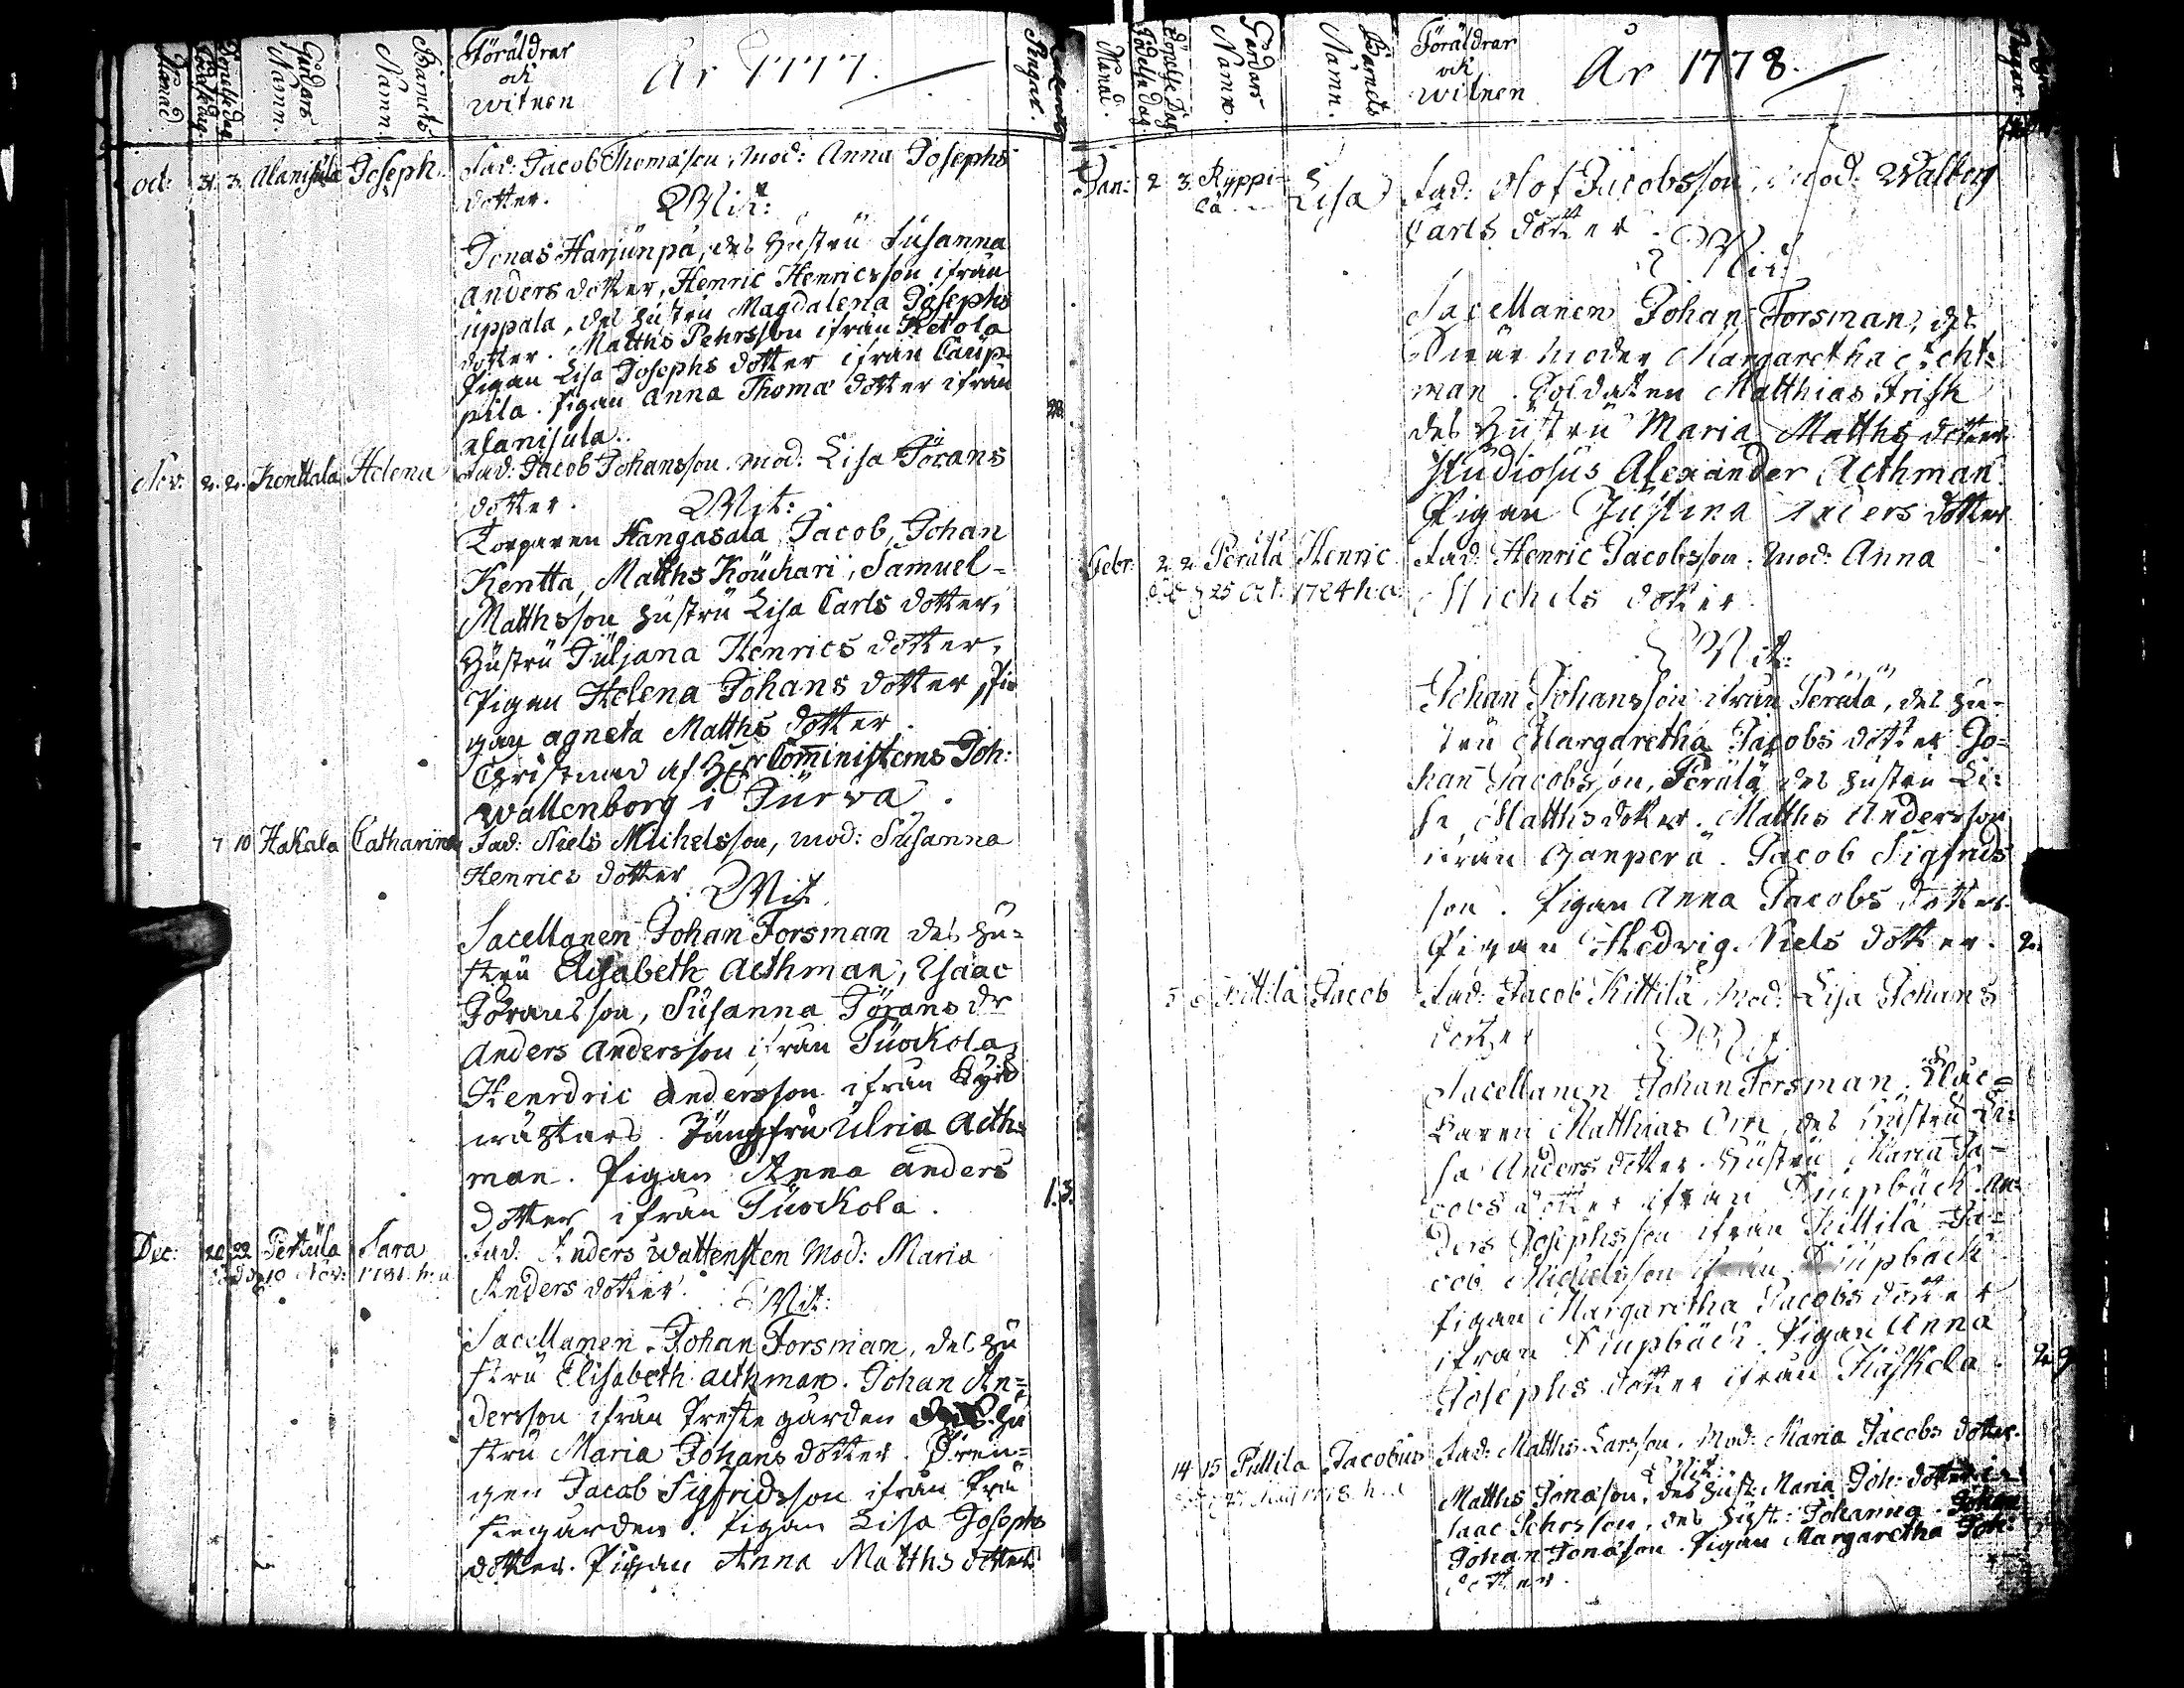 Månad.
Födelse dag
Döpelse Dag
Gårdars Namn.
Barnets Namn.
Föräldrar
och
witnen
År 1777.
oct: 31. 3. Alanisula Joseph. Fad: Jacob Thomasson, mod: Anna Josephs
dotter. Wit:
Jonas Harjunpä, des hustru Susanna
Anders dotter, Henric Henricsson ifrån
uppala, des hustru Magdalena Josephs
dotter. Matths Pehrsson ifrån Ketola
Pigan Lisa Josephs dotter ifrån Caup-
pila. Pigan Anna Thomæ dotter ifrån
alanisula.
Nov: 2. 2. Kenttala Helena Fad: Jacob Johansson mod: Lisa Jörans
dotter. Wit:
Torparen Kangasala Jacob, Johan
Kentta, Matths Kouchari, Samuel
Matthsson hustru Lisa Carls dotter,
Hustru Juljana Henrics dotter,
Pigan Helena Johans dotter, Pi-
gan agneta Matths dotter.
Christnad af Hr Comministerns Joh:
Wallenborg i Jurva.
7 10 Hakala Catharina Fad: Niels Michelsson, mod: Susanna
Henrics dotter Wit.
Sacellanen Johan Forsman des hu-
stru Elisabeth Aethman, Isaac
Göransson, Susanna Jörans dr
Anders Andersson ifrån Tuockola,
Henrdric Andersson ifrån
Jungfru Ulrica Aeth-
man. Pigan Anna Anders
dotter ifrån Tuockola.
Dec: 20 22 Pertula Sara Fad: Anders Wattensten Mod: Maria
10 Nov: 1781. h. a. Anders dotter. Wit:
Sacellanen Johan Forsman, des hu
stru Elisabeth aethman. Johan An-
dersson ifrån Preste gården hu
stru Maria Johans dotter. Dren-
gen Jacob Sigfridsson ifrån Prä
stegården. Pigan Lisa Josephs
dotter. Pigan Anna Matths dotter
Månad.
Födelse Dag
Döpelse Dag
Gårdars Namn.
Barnets Namn.
Föräldrar
och
witnen
År 1778.
Jan: 2 3. Lisa Fad: Olof Jacobsson, Mod: Walborg
Carls dotter.
Wit:
Sacellanen Johan Forsman, des
Swärmoder Margaretha
man. Soldaten Matthias Frisk
des Hustru Maria Matths dotter
Studiosus Alexander Aethman.
Pigan Justina Anders dotter
Febr: 2 2 Perälä Henric Fad: Henric Jacobsson, Mod: Anna
25 h: a: Michels dotter
Wit:
Johan Johansson ifrån Perälä, des hu-
stru Margaretha Jacobs dotter Jo-
han Jacobsson, Perälä des hustru Li-
sa Matths dotter. Matths Andersson
ifrån Ganperä. Jacob Sigfrids
son. Pigan Anna Jacobs dotter
Pigan Hedvig Niels dotter. 2.
5 Kittilä Jacob Fad: Jacob Kittilä, Mod: Lisa Johans
dotter Wit
Sacellanen Johan Forsman. Kloc-
karen Matthias des Hustru Li-
sa Anders dotter. Hustru Maria Ja-
cobs dotter ifrån An-
ders Josephsson ifrån Kittilä Ja-
cob Michelsson ifrån
Pigan Margaretha Jacobs dotter
ifrån Pigan Anna
Josephs dotter ifrån
14 15 Pullila Jacobus Fad: Matths Larsson. Mod: Maria Jacobs dotter.
Wit:
Matths Jonasson, des hust: Maria Joh: dotter
Isaac Pehrsson, des Hust: Johanna
Johan Jonasson. Pigan Margaretha Joh:
dotter.